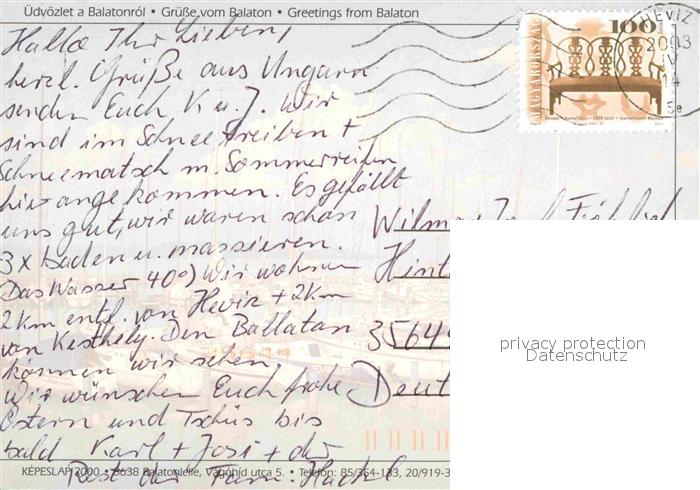 Üdvözlet a Balatonról • Grüße vom Balaton • Greetings from Balaton
Hallo Ihr Lieben,
herzl. Grüße aus Ungarn
senden Euch K u. J. Wir
sind im Schneetreiben +
Schneematsch m. Sommerreifen
hier angekommen. Es gefällt
uns gut, wir waren schon
3x baden u. massieren.
Das Wasser 40°) Wir wohnen
2km entf. von Heviz + 2km
von Kesthely. Den Ballatan
können wir sehen.
Wir wünschen Euch frohe
Ostern und Tschüs bis
bald Karl + Josi + der
Rest der Fam. Hackl
MAGYARORSZÁG
100
HEVIZ
2003
IV
14
Wilma
Hint
3564
Deut
privacy protection
Datenschutz
KÉPESLAP 2000 • 8638 Balatonlelle, Vágóhíd utca 5. • Telefon: 85/354-133, 20/919-3